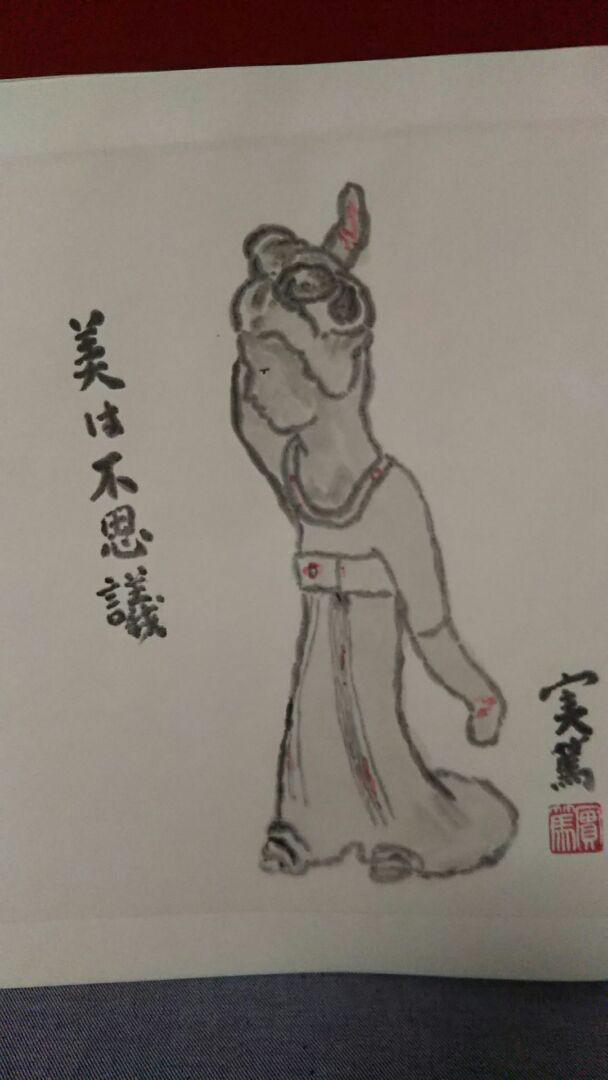 美は不思議
実篤
實篤